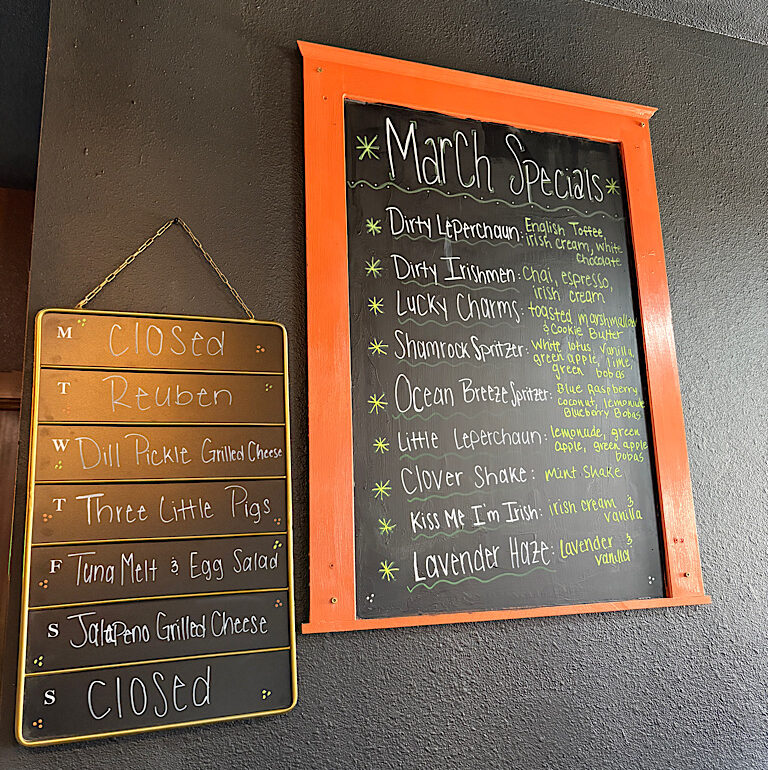 M Closed
T Reuben
W Dill Pickle Grilled Cheese
T Three Little Pigs
F Tuna Melt & Egg Salad
S Jalapeno Grilled Cheese
S Closed
March Specials
Dirty Leperchaun: English Toffee,
irish cream, white
chocolate
Dirty Irishmen: Chai, espresso,
irish cream
Lucky Charms: toasted marshmallow
& Cookie Butter
Shamrock Spritzer: White lotus, vanilla,
green apple, lime,
green bobas
Ocean Breeze Spritzer: Blue Raspberry
coconut, lemonade
Blueberry Bobas
Little Leperchaun: lemonade, green
apple, green apple
bobas
Clover Shake: mint shake
Kiss Me I'm Irish: irish cream &
vanilla
Lavender Haze: Lavender &
vanilla